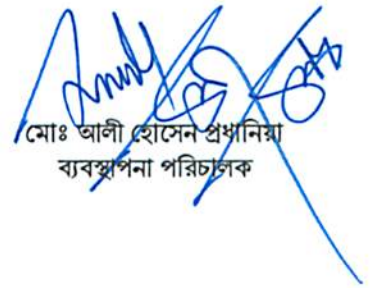 মোঃ আলী হোসেন প্রধানিয়া
ব্যবস্থাপনা পরিচালক